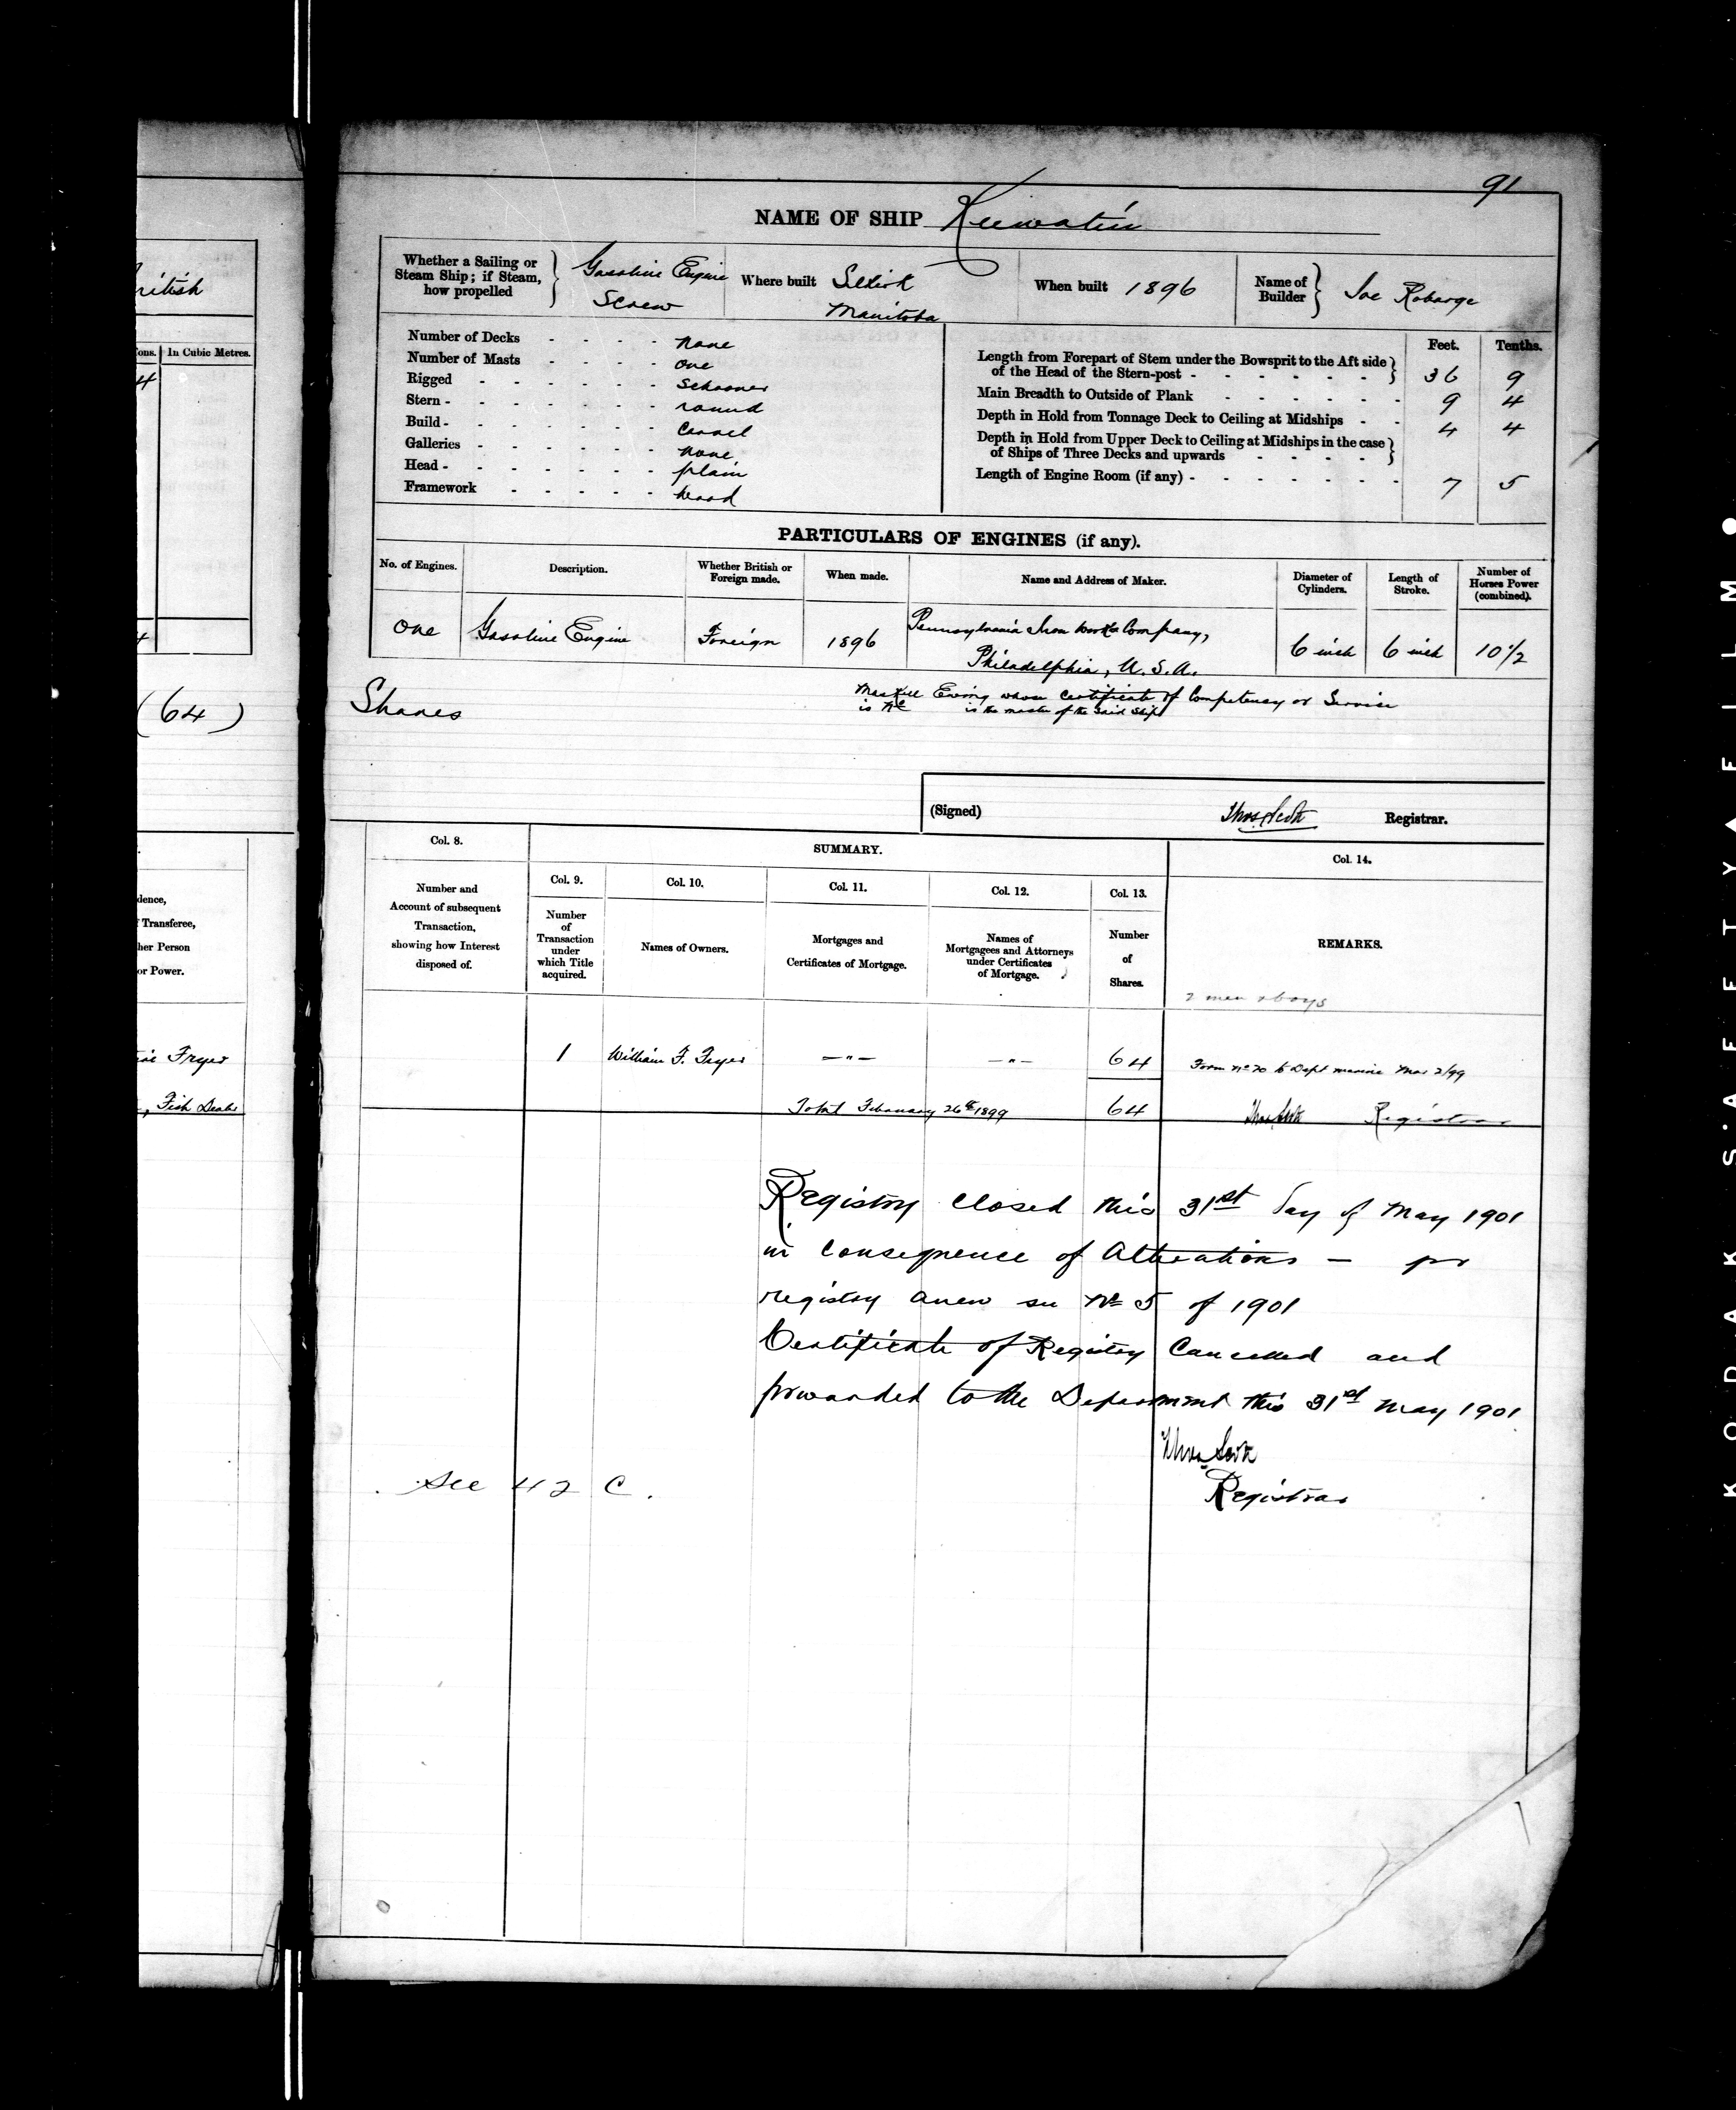 91
NAME OF SHIP Keewatin
Whether a Sailing or Steam Ship; if Steam, how propelled } Gasoline Engine Screw
Where built Selkirk Manitoba
When built 1896
Name of Builder } Joe Robarge
Number of Decks - - - - none
Number of Masts - - - - one
Rigged - - - - - - Schooner
Stern - - - - - - - round
Build - - - - - - - Carvel
Galleries - - - - - - none
Head - - - - - - - plain
Framework - - - - - wood
Feet. Tenths.
Length from Forepart of Stem under the Bowsprit to the Aft side
of the Head of the Stern-post - - - - - - } 36 9
Main Breadth to Outside of Plank - - - - - - 9 4
Depth in Hold from Tonnage Deck to Ceiling at Midships - - 4 4
Depth in Hold from Upper Deck to Ceiling at Midships in the case
of Ships of Three Decks and upwards - - - - }
Length of Engine Room (if any) - - - - - - - 7 5
PARTICULARS OF ENGINES (if any).
No. of Engines.
Description.
Whether British or Foreign made.
When made.
Name and Address of Maker.
Diameter of Cylinders.
Length of Stroke.
Number of Horses Power (combined).
One Gasoline Engine Foreign 1896 Pennsylvania Iron Works Company, 6 inch 6 inch 10 1/2
Philadelphia, U.S.A.
Shares
Ewing whose Certificate of Competency or Service
is No is the master of the said Ship
(Signed) Thos Scott Registrar.
Col. 8.
Number and Account of subsequent Transaction, showing how Interest disposed of.
SUMMARY.
Col. 9.
Number of Transaction under which Title acquired.
Col. 10.
Names of Owners.
Col. 11.
Mortgages and Certificates of Mortgage.
Col. 12.
Names of Mortgagees and Attorneys under Certificates of Mortgage.
Col. 13.
Number of Shares.
Col. 14.
REMARKS.
2 men & boys
1 William F. Fryer —"— —"— 64 Form No 20 to Dept marine Mar 2/99
Total February 26th 1899 64 Thos Scott Registrar
Registry closed this 31st day of May 1901
in consequence of Alterations — for
registry anew see No 5 of 1901
Certificate of Registry Cancelled and
forwarded to the Department this 31st May 1901
Thos Scott
Registrar
See 42 C.
British
Tons. In Cubic Metres.
4
4
(64)
dence,
Transferee,
her Person
or Power.
Fryer
, Fish Dealer
KODAK SAFETY FILM